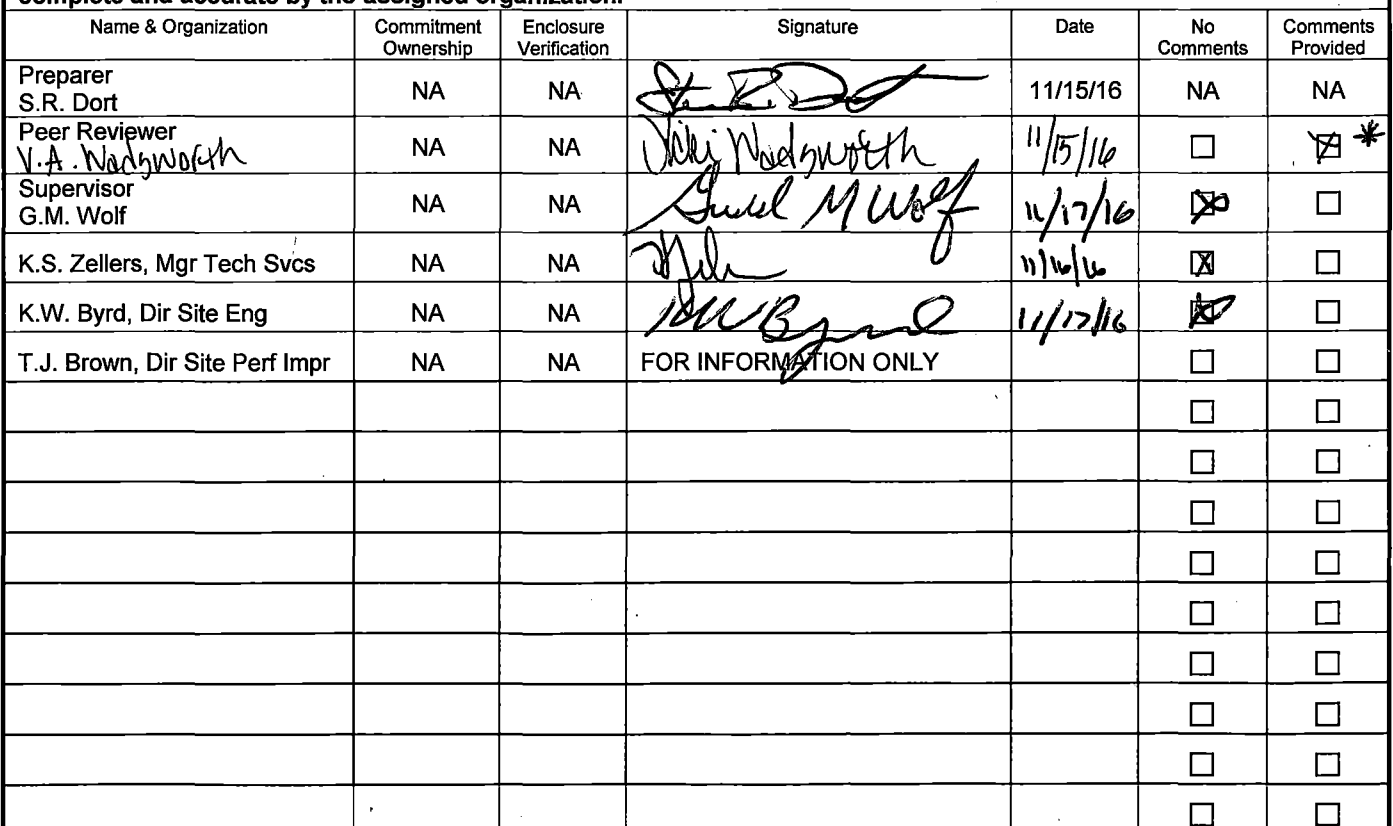 complete and accurate by the assigned organization.
Name & Organization Commitment Ownership Enclosure Verification Signature Date No Comments Comments Provided
Preparer
S.R. Dort NA NA 11/15/16 NA NA
Peer Reviewer
V.A. Wadsworth NA NA Vicki Wadsworth 11/15/16 ☐ ☒ *
Supervisor
G.M. Wolf NA NA M Wolf 11/17/16 ☒ ☐
K.S. Zellers, Mgr Tech Svcs NA NA 11/16/16 ☒ ☐
K.W. Byrd, Dir Site Eng NA NA KW Byrd 11/17/16 ☒ ☐
T.J. Brown, Dir Site Perf Impr NA NA FOR INFORMATION ONLY ☐ ☐